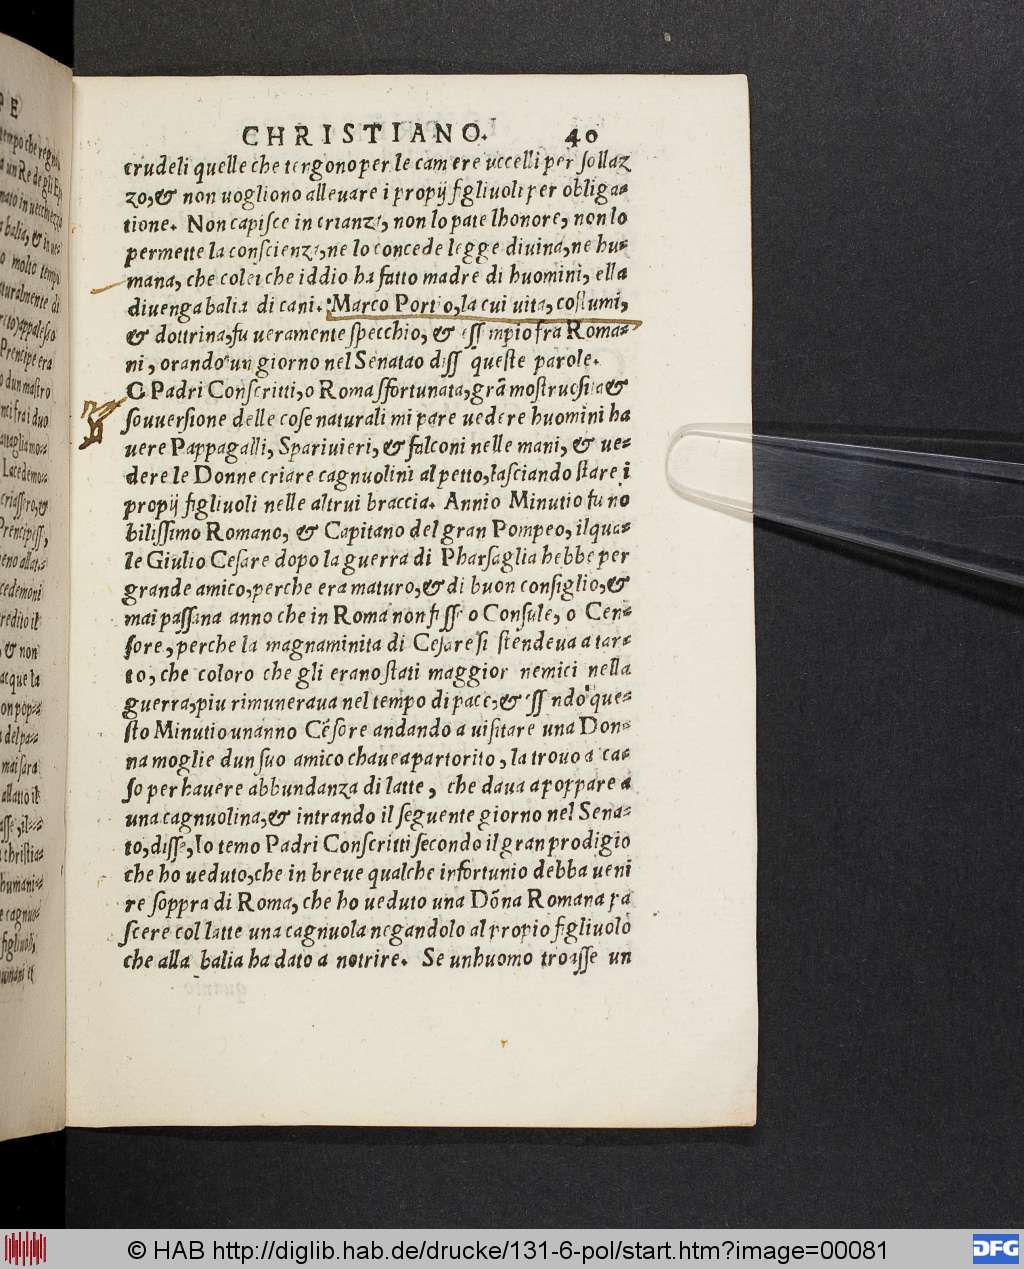 CHRISTIANO. 40
crudeli quelle che tengono per le camere uccelli per sollaz
zo, & non uogliono alleuare i proprij figliuoli per obliga-
tione. Non capisce in crianza, non lo pate lhonore, non lo
permette la conscienza, ne lo concede legge diuina, ne hu-
mana, che colei che iddio ha fatto madre di huomini, ella
diuenga balia di cani. Marco Portio, la cui uita, costumi,
& dottrina, fu ueramente specchio, & essempio fra Roma-
ni, orando un giorno nel Senatao disse queste parole.
O Padri Conscritti, o Roma sfortunata, grã mostruosita &
souuersione delle cose naturali mi pare uedere huomini ha
uere Pappagalli, Spariuieri, & falconi nelle mani, & ue-
dere le Donne criare cagnuolini al petto, lasciando stare i
propij figliuoli nelle altrui braccia. Annio Minutio fu no
bilissimo Romano, & Capitano del gran Pompeo, il qua-
le Giulio Cesare dopo la guerra di Pharsaglia hebbe per
grande amico, perche era maturo, & di buon consiglio, &
mai passana anno che in Roma non fisse o Consule, o Cen-
sore, perche la magnaminita di Cesare si stendeua a tan-
to, che coloro che gli erano stati maggior nemici nella
guerra, piu rimuneraua nel tempo di pace, & essendo que-
sto Minutio unanno Cẽsore andando a uisitare una Don-
na moglie dun suo amico chaueapartorito, la trouo a ca-
so per hauere abbundanza di latte, che daua a poppare a
una cagnuolina, & intrando il seguente giorno nel Sena-
to, disse, Io temo Padri Conscritti secondo il gran prodigio
che ho ueduto, che in breue qualche infortunio debba ueni
re soppra di Roma, che ho ueduto una Dõna Romana pa
scere col latte una cagnuola negandolo al propio figliuolo
che alla balia ha dato a notrire. Se unhuomo trouasse un
© HAB http://diglib.hab.de/drucke/131-6-pol/start.htm?image=00081
DFG